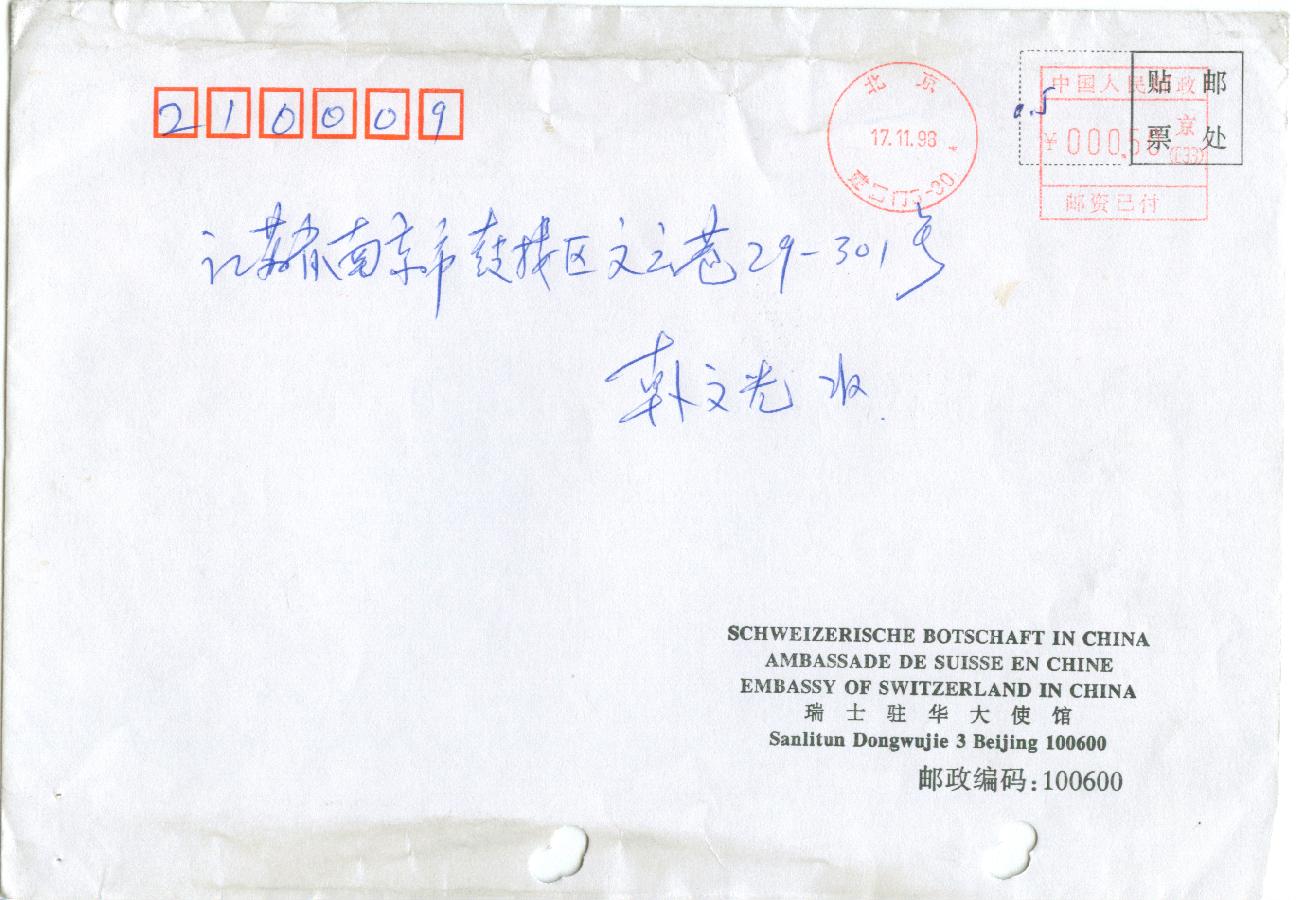 210009
北京
17.11.98
中国人民邮政
京
¥000.50
邮资已付
贴邮
票处
0.5
江苏省南京市鼓楼区文云巷29-301号
韩文光 收
SCHWEIZERISCHE BOTSCHAFT IN CHINA
AMBASSADE DE SUISSE EN CHINE
EMBASSY OF SWITZERLAND IN CHINA
瑞士驻华大使馆
Sanlitun Dongwujie 3 Beijing 100600
邮政编码:100600